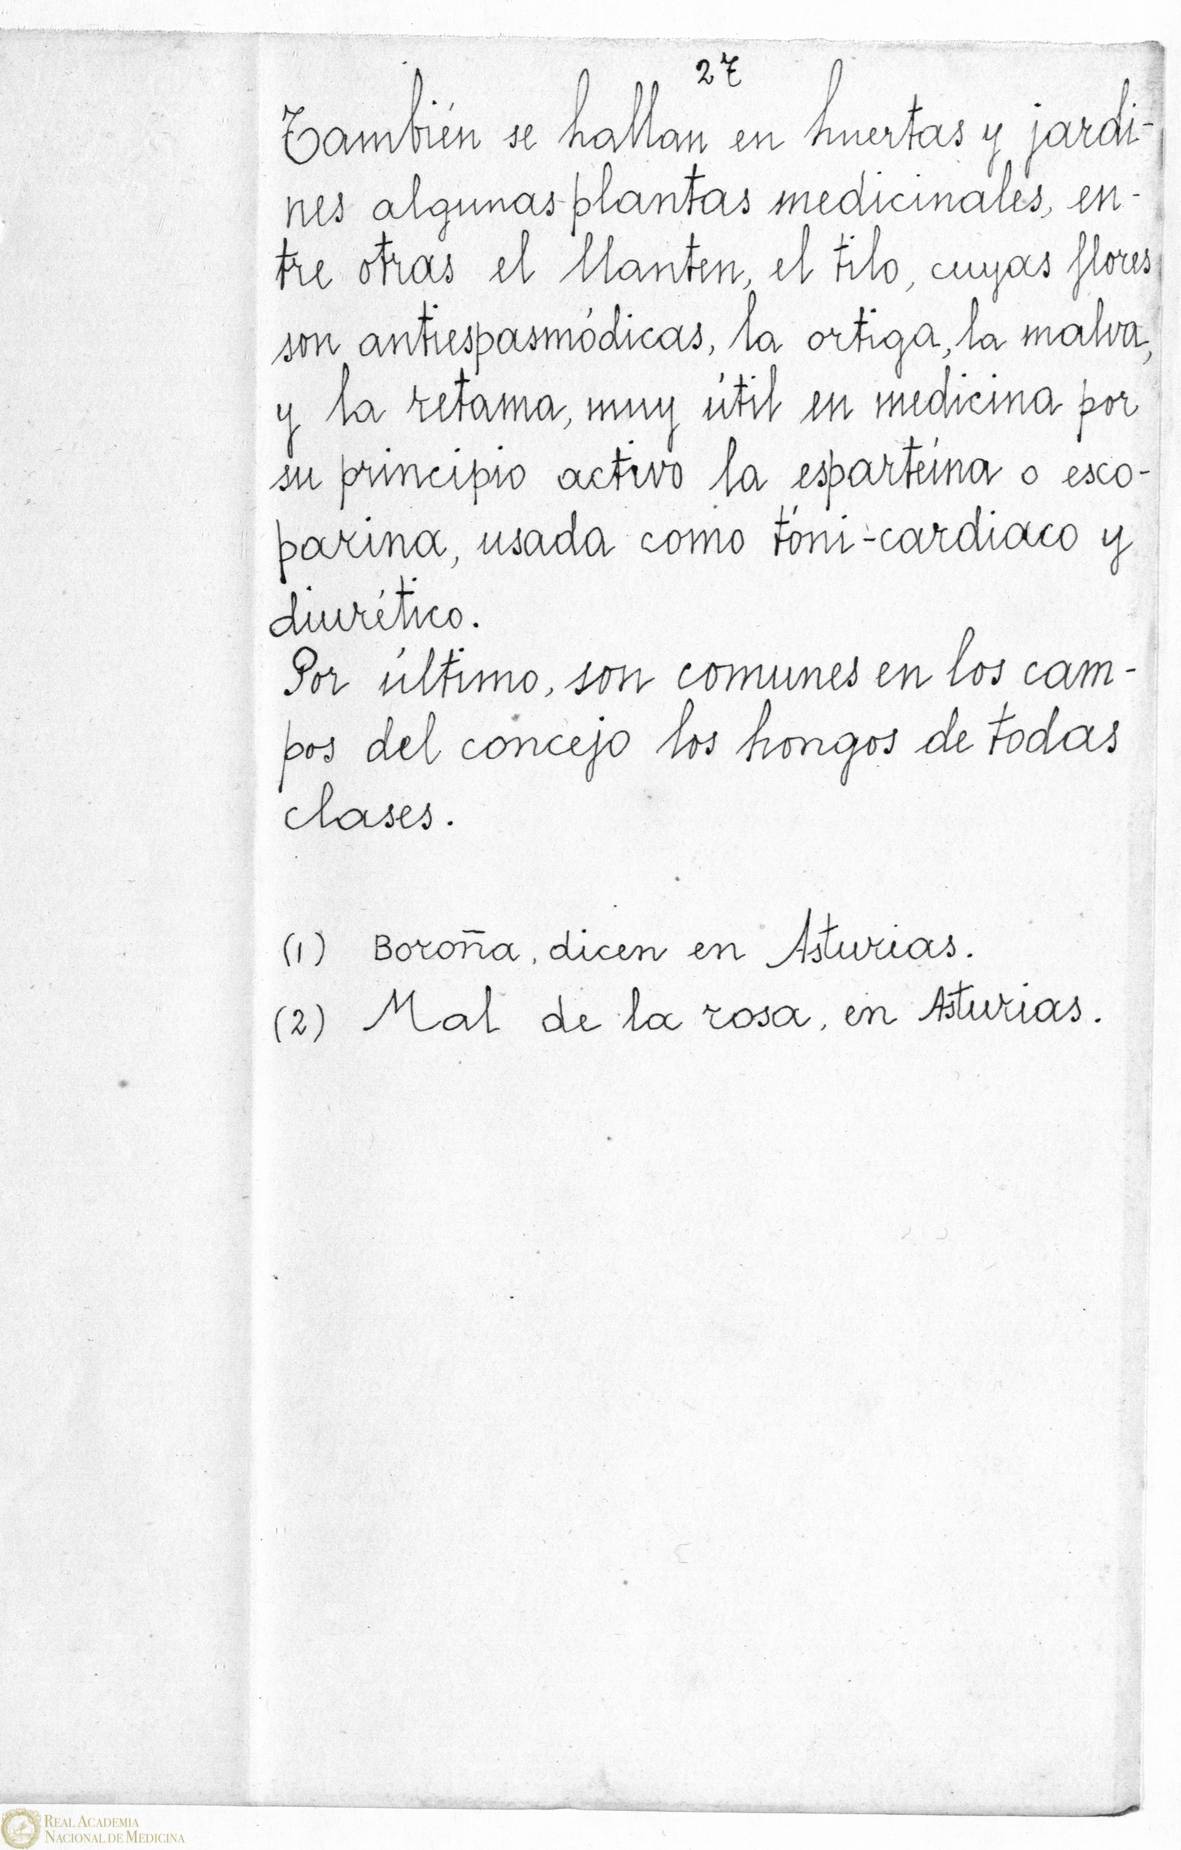 27
También se hallan en huertas y jardi-
nes algunas plantas medicinales, en-
tre otras el llanten, el tilo, cuyas flores
son antiespasmódicas, la ortiga, la malva,
y la retama, muy útil en medicina por
su principio activo la esparteína o esco-
parina, usada como tóni-cardiaco y
diurético.
Por último, son comunes en los cam-
pos del concejo los hongos de todas
clases.
(1) Boroña, dicen en Asturias.
(2) Mal de la rosa, en Asturias.
REAL ACADEMIA
NACIONAL DE MEDICINA